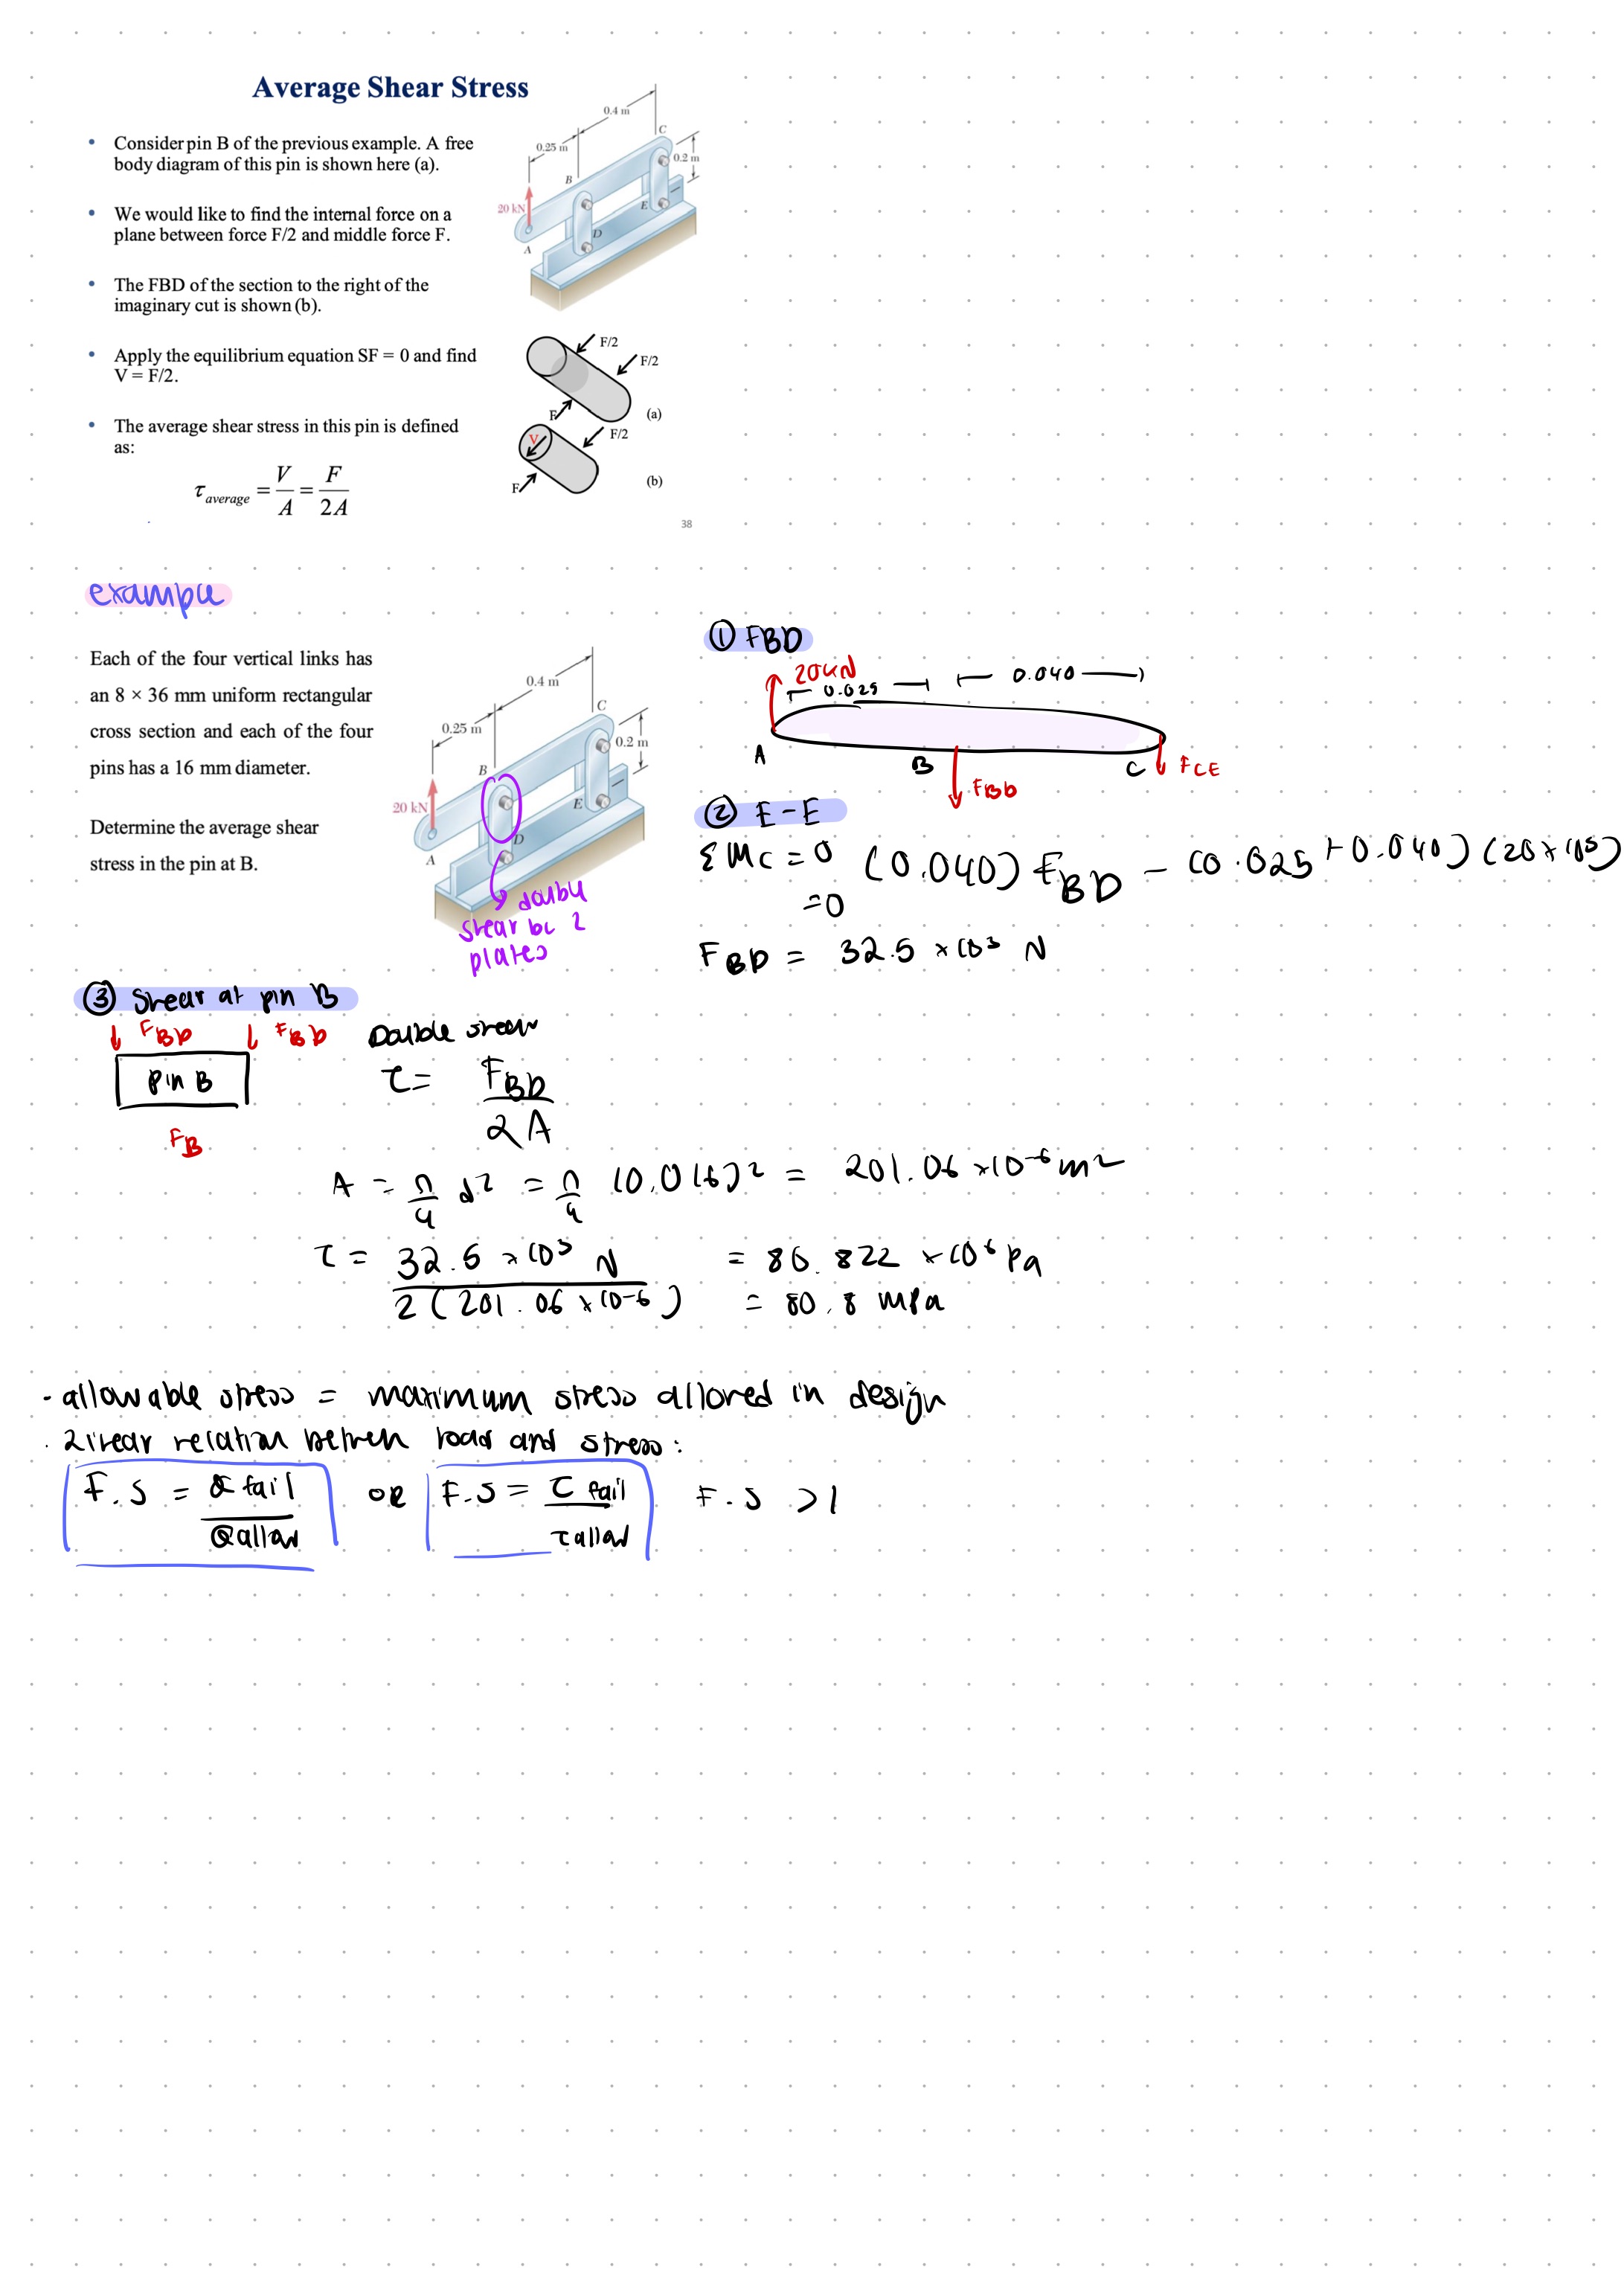 Average Shear Stress
• Consider pin B of the previous example. A free
body diagram of this pin is shown here (a).
• We would like to find the internal force on a
plane between force F/2 and middle force F.
• The FBD of the section to the right of the
imaginary cut is shown (b).
• Apply the equilibrium equation SF = 0 and find
V = F/2.
• The average shear stress in this pin is defined
as:
τ average = V/A = F/2A
0.4 m
0.25 m
C
0.2 m
B
20 kN
E
D
A
F/2
F/2
F
(a)
V
F/2
F
(b)
38
example
Each of the four vertical links has
an 8 × 36 mm uniform rectangular
cross section and each of the four
pins has a 16 mm diameter.
Determine the average shear
stress in the pin at B.
0.4 m
0.25 m
C
0.2 m
B
20 kN
E
D
A
double
shear bc 2
plates
① FBD
20kN
0.025
0.040
A
B
C
FBD
FCE
② E-E
ΣMC = 0 (0.040) FBD - (0.025 + 0.040) (20 × 10³)
= 0
FBD = 32.5 × 10³ N
③ Shear at pin B
FBD FBD
pin B
FB
Double shear
τ = FBD / 2A
A = π/4 d² = π/4 (0.016)² = 201.06 × 10⁻⁶ m²
τ = 32.5 × 10³ N / 2 (201.06 × 10⁻⁶) = 80.822 × 10⁶ Pa
= 80.8 MPa
- allowable stress = maximum stress allored in design
. linear relation between load and stress:
F.S = σ fail / σ allow OR F.S = τ fail / τ allow F.S > 1